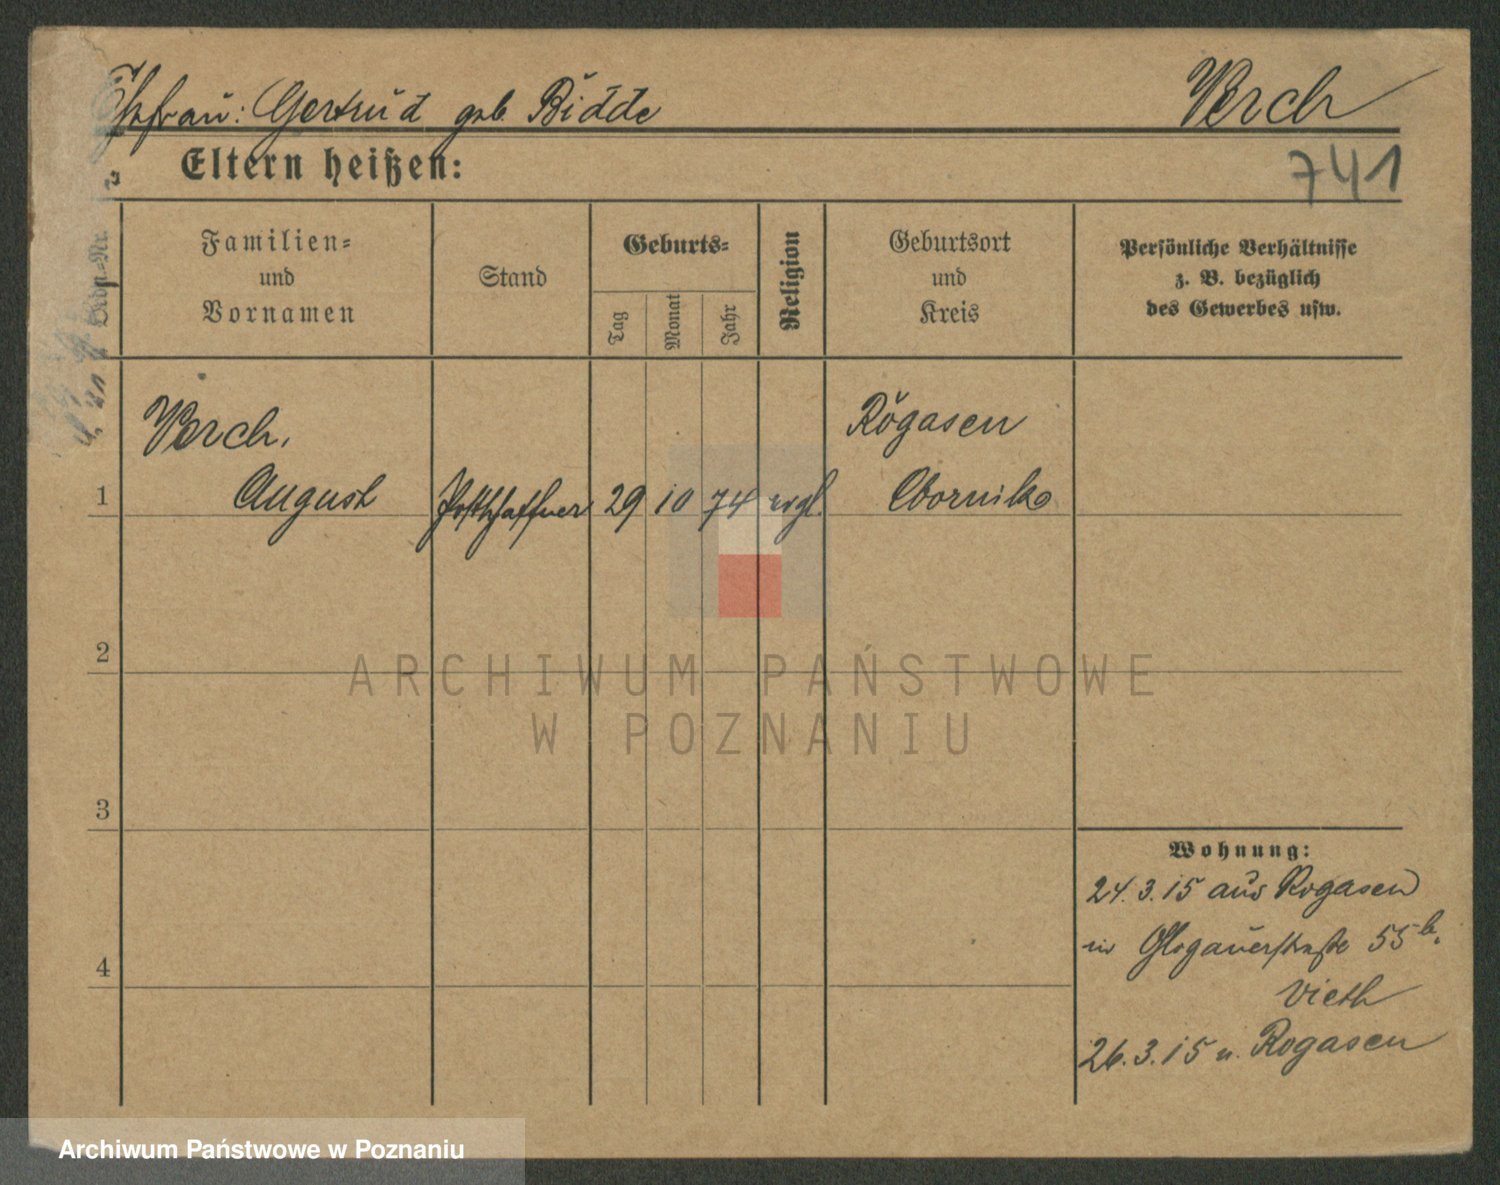 Ehefrau: Gertrud geb Bidde Verch
Eltern heißen:
741
Ordn.-Nr.
Familien-
und
Vornamen
Stand
Geburts-
Tag
Monat
Jahr
Religion
Geburtsort
und
Kreis
Persönliche Verhältnisse
z. B. bezüglich
des Gewerbes usw.
Verch, Rogasen
1 August Postschaffner 29 10 74 evgl. Obornik
2
3
4
Wohnung:
24.3.15 aus Rogasen
in Glogauerstraße 55b.
Vieth
26.3.15 n. Rogasen
ARCHIWUM PAŃSTWOWE
W POZNANIU
Archiwum Państwowe w Poznaniu